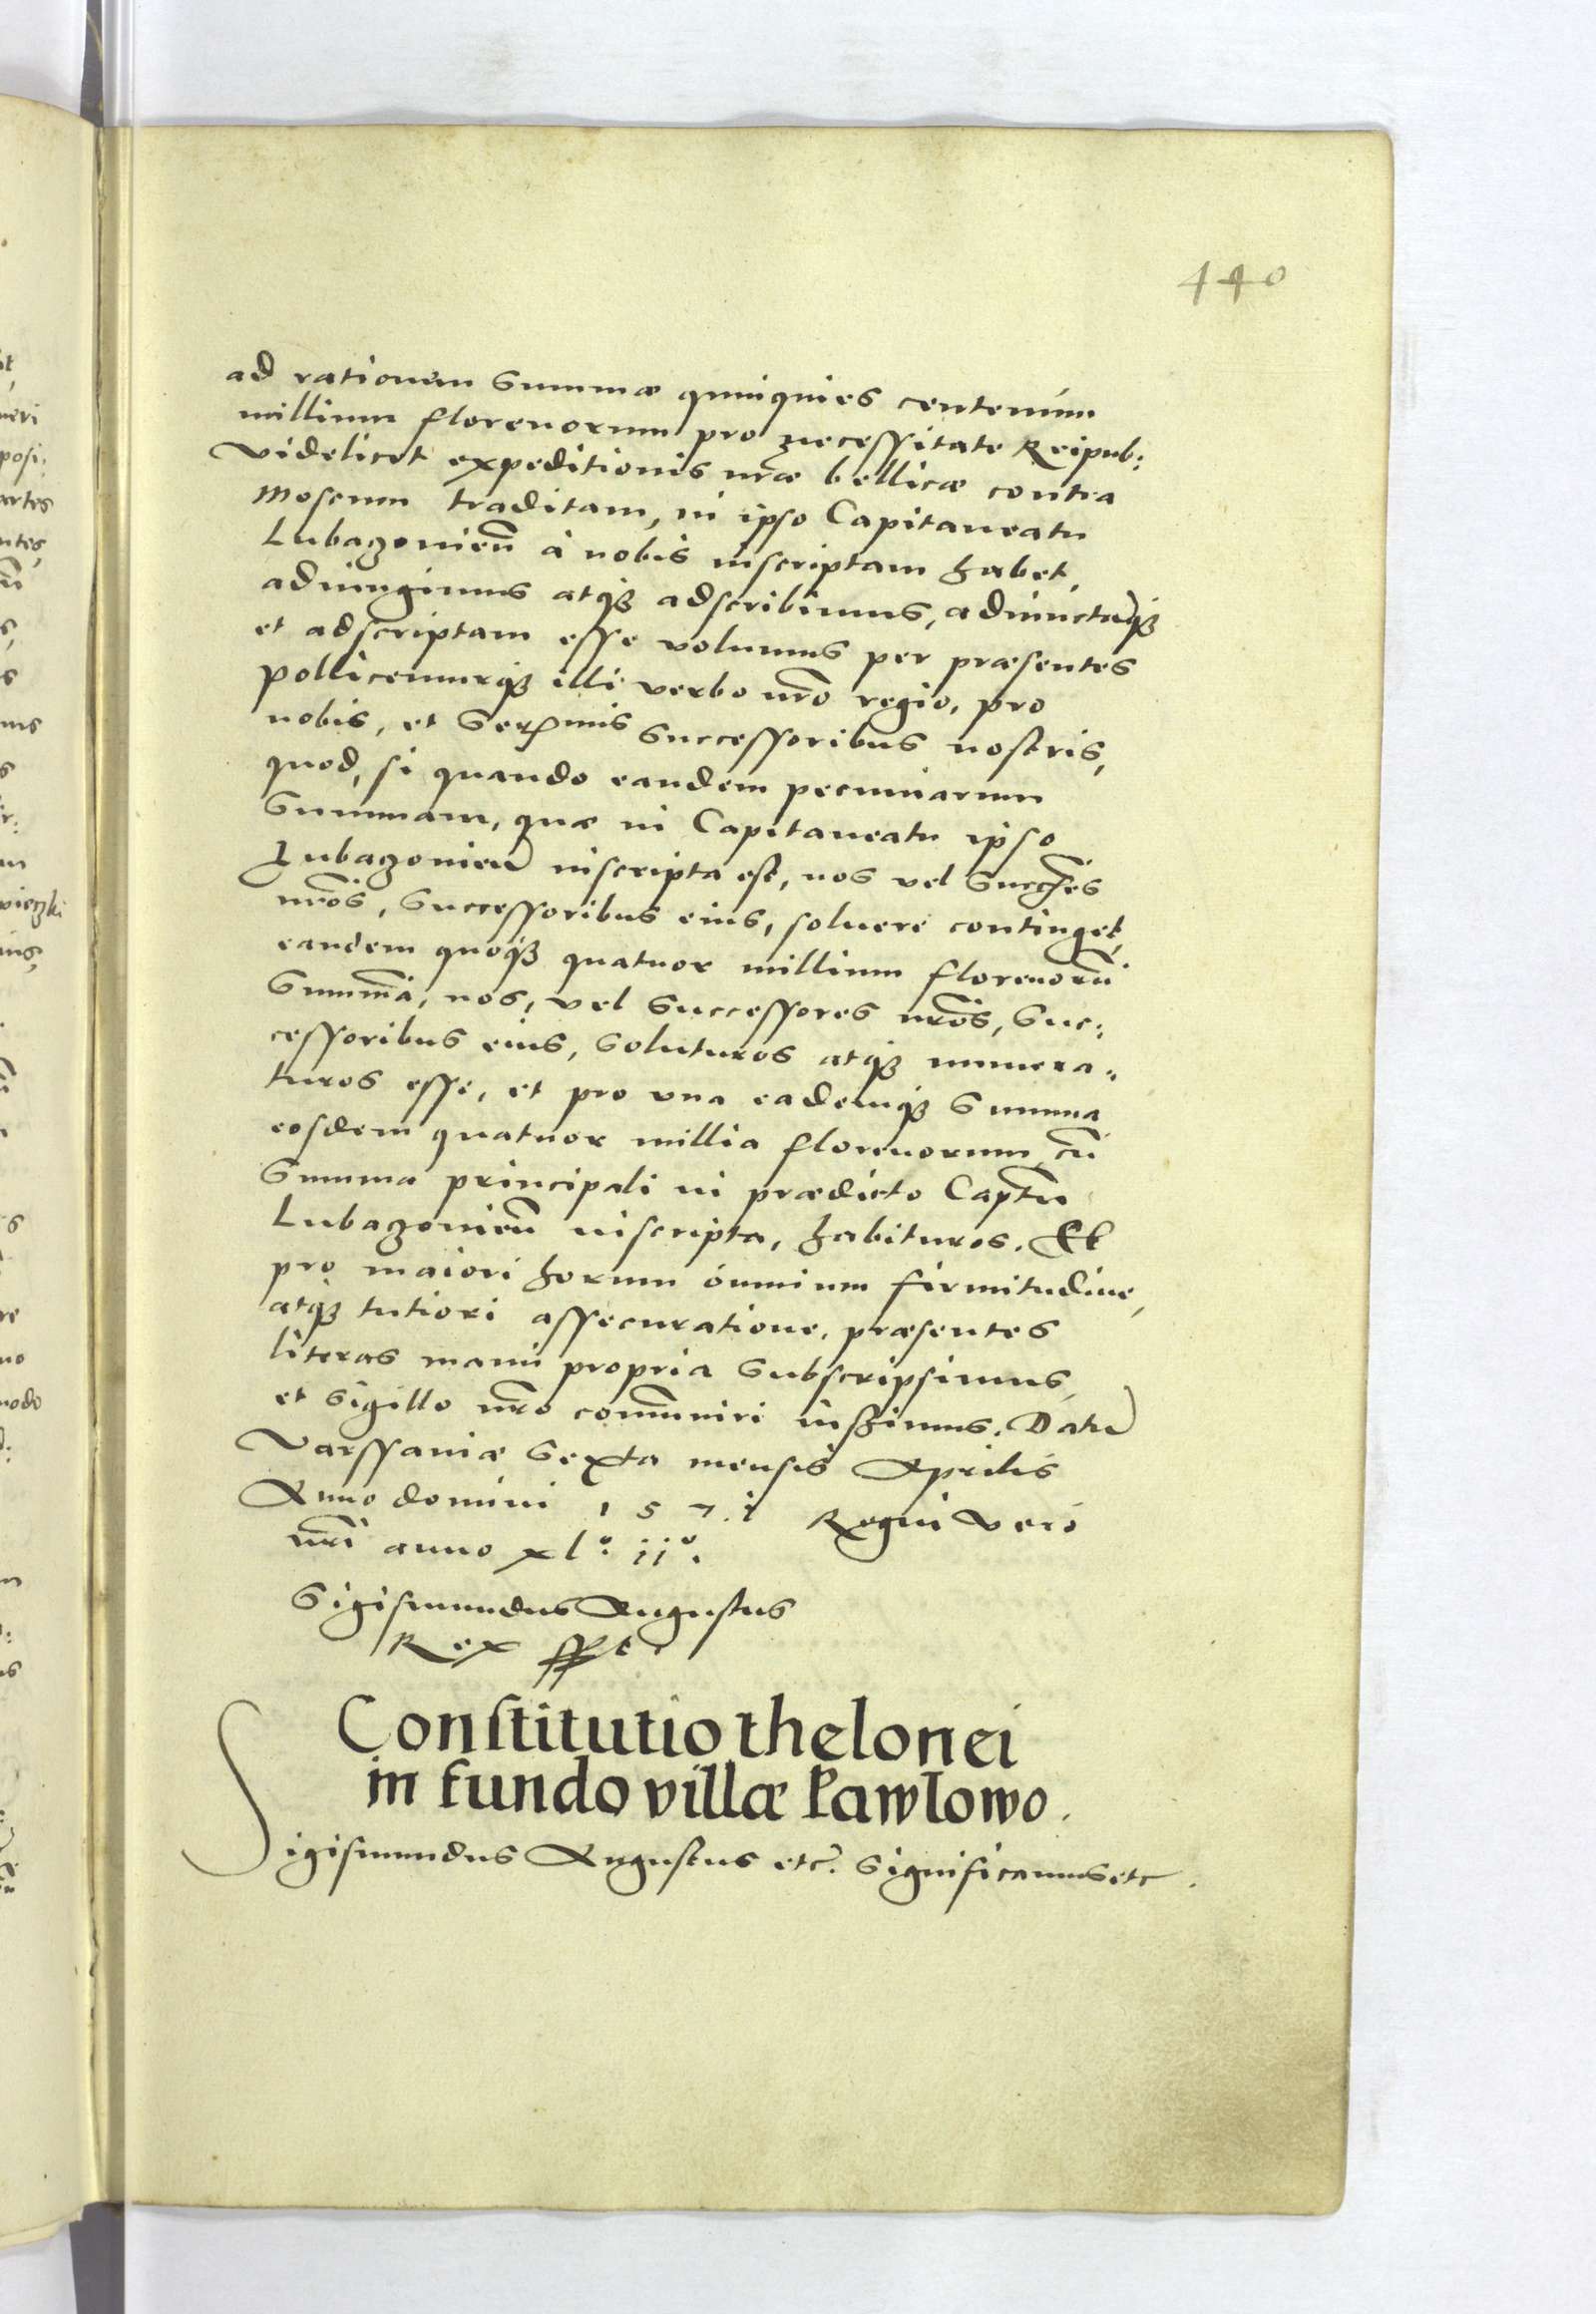 440
ad rationem Summæ quinquies centenûm
millium florenorum pro necessitate Reipub:
videlicet expeditionis nr̃æ bellicæ contra
Moscum traditam, in ipso Capitaneatu
Lubaczonieñ à nobis inscriptam habet,
adiungimus atq3 adscribimus, adiunctãq3
et adscriptam esse volumus per præsentes
pollicemurq3 illi verbo nr̃o regio, pro
nobis, et Ser̃mis Successoribus nostris,
quod, si quando eandem pecuniarum
Summam, quæ in Capitaneatu ipso
Lubaczonieñ inscripta est, nos vel Succes̃es
nr̃os, Successoribus eius, soluere continget,
eandem quoq3 quatuor millium florenorũ
Summã, nos, vel Successores nr̃os, Suc:
cessoribus eius, Soluturos atq3 numera:
turos esse, et pro vna eademq3 Summa
eosdem quatuor millia florenorum, cũ
Summa principali in prædicto Captũ
Lubaczonieñ inscripta, habituros. Et
pro maiori horum omnium firmitudine,
atq3 tutiori assecuratione, præsentes
literas manu propria Subscripsimus,
et Sigillo nr̃o com̃uniri iussimus. Datũ
Varssauiæ Sexta mensis Aprilis
Anno domini 1571 Regni vero
nr̃i anno xlº: iiº.
Sigismundus Augustus
Rex sst
Constitutio thelonei
in fundo villæ Pawlowo.
Sigismundus Augustus etc̃. Significamus etc.